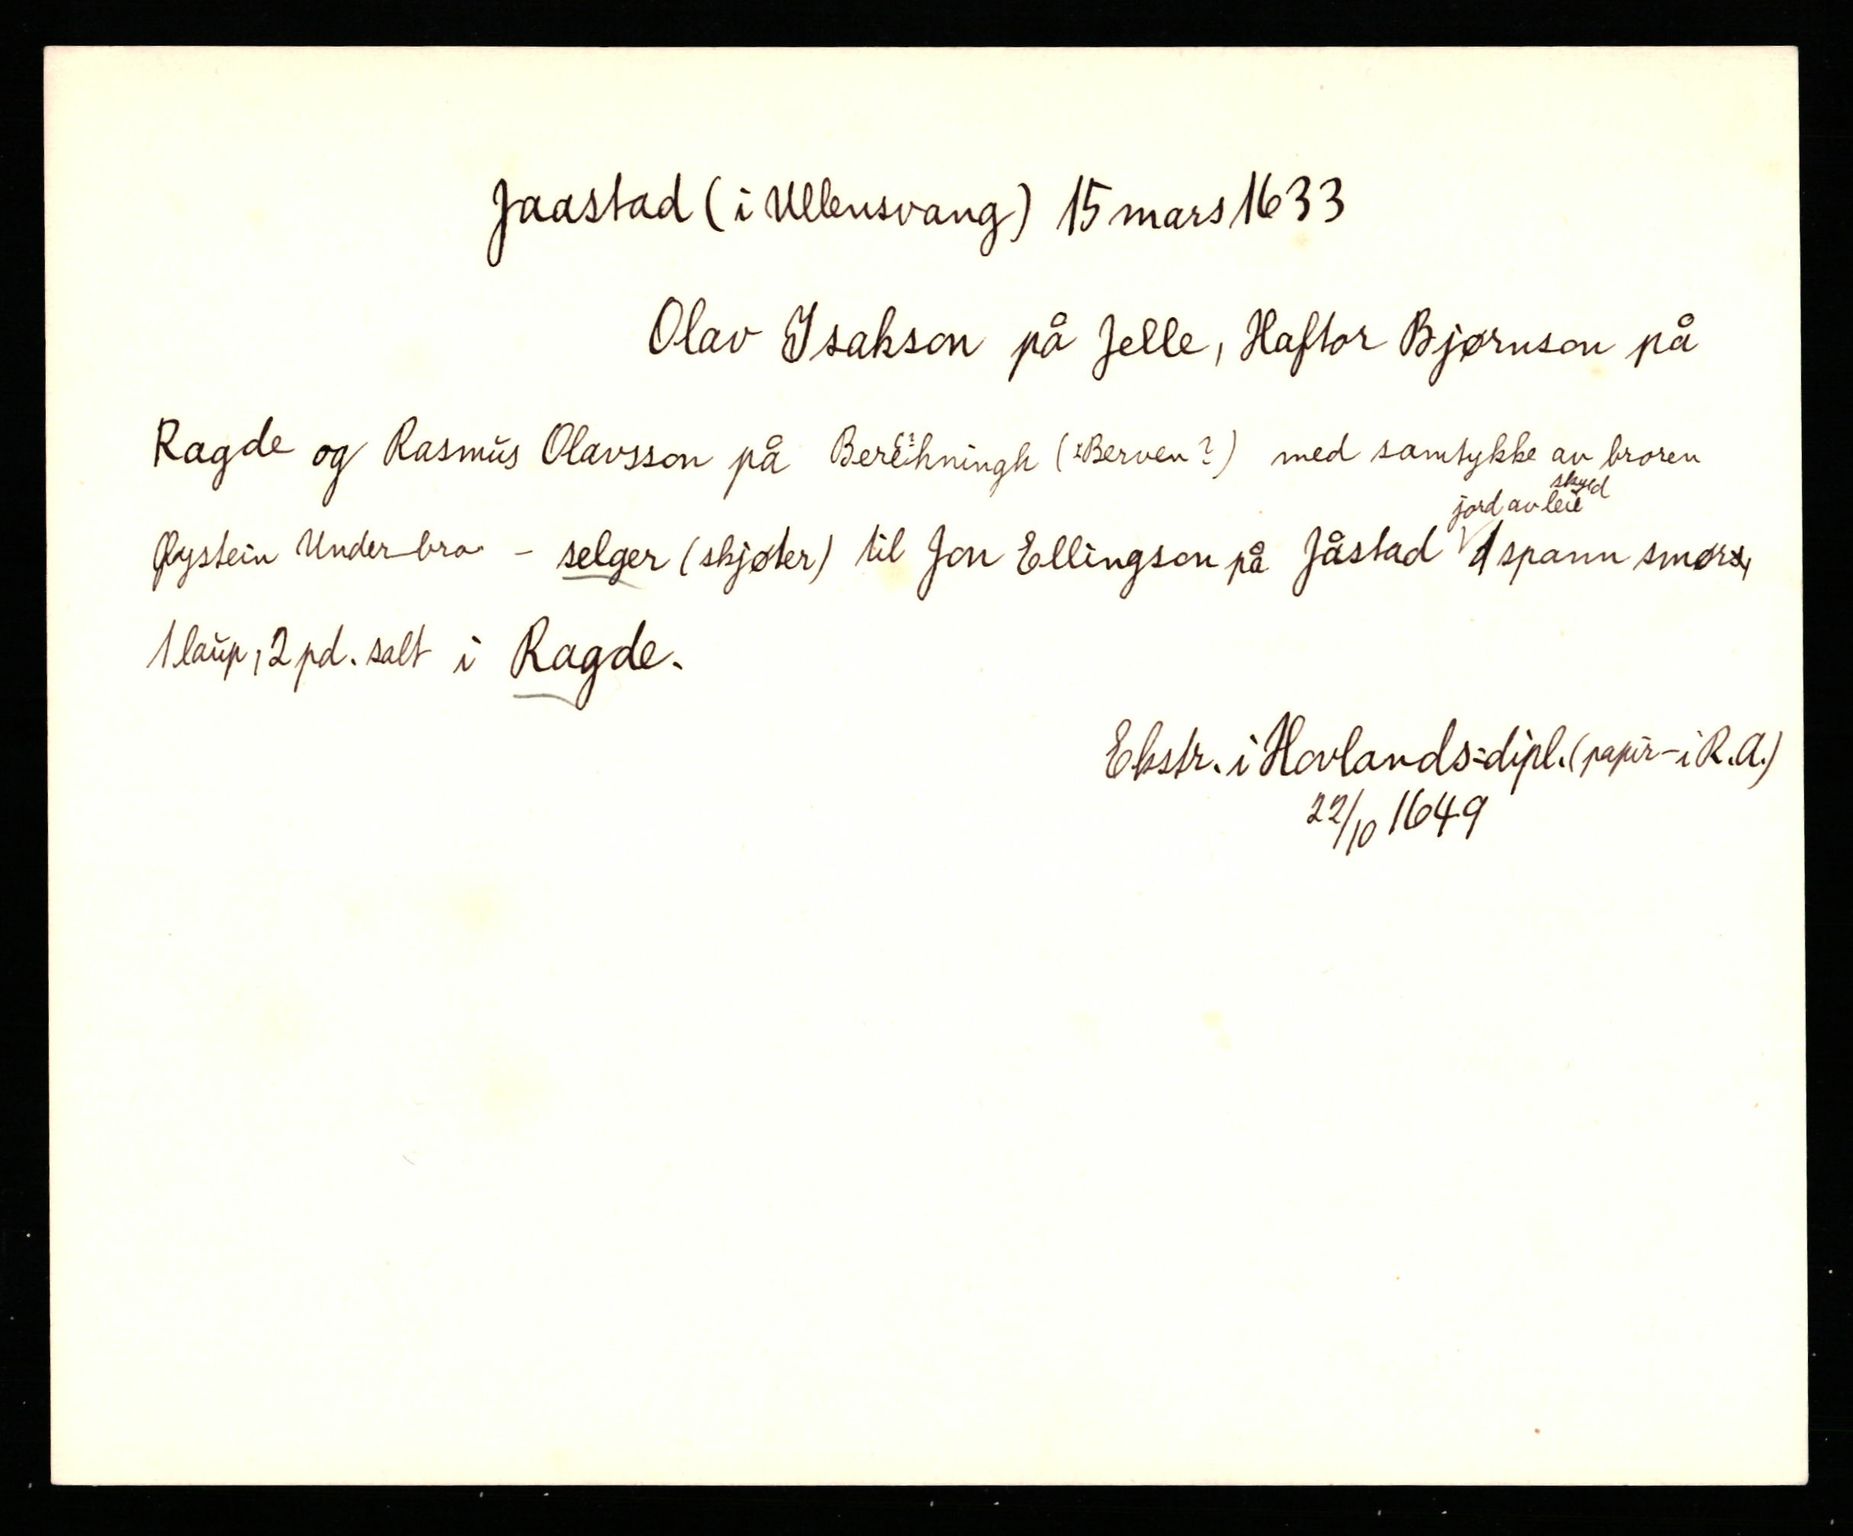 Jaastad (i Ullensvang) 15 mars 1633
Olav Isakson på Jelle, Haftor Bjørnson på
Ragde og Rasmus Olavsson på (: Berven?) med samtykke av broren
skyld
jord av leie
Øystein Under-bra - selger (skjøter) til Jon Ellingson på Jåstad 1 spann smørs,
1 laup, 2 pd. salt i Ragde.
Ekstr. i Hovlands-dipl. (papir - i R.A.)
22/10 1649